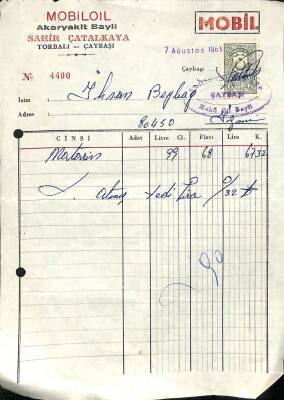 MOBİLOIL
Akaryakıt Bayii
SAHİR ÇATALKAYA
TORBALI — ÇAYBAŞI
MOBİL
7 Ağustos 1961
Çaybaşı
№ 4400
İsim : İhsan
Adres :
80450
ÇAYBAŞI
Mobil Oil Bayii
CİNSİ Adet Litre Cl. Fiatı Lira K.
Motorin 99 68 67 32
Atmış yedi lira 32